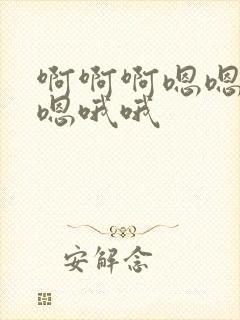 啊啊啊嗯嗯
嗯哦哦
安解念